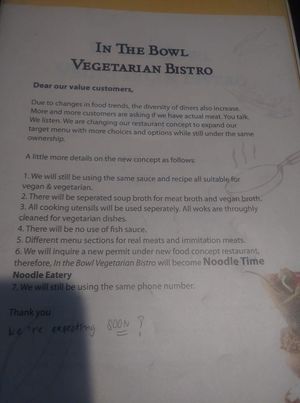 IN THE BOWL
VEGETARIAN BISTRO
Dear our value customers,
Due to changes in food trends, the diversity of diners also increase.
More and more customers are asking if we have actual meat. You talk.
We listen. We are changing our restaurant concept to expand our
target menu with more choices and options while still under the same
ownership.
A little more details on the new concept as follows:
1. We will still be using the same sauce and recipe all suitable for
vegan & vegetarian.
2. There will be seperated soup broth for meat broth and vegan broth.
3. All cooking utensils will be used seperately. All woks are throughly
cleaned for vegetarian dishes.
4. There will be no use of fish sauce.
5. Different menu sections for real meats and immitation meats.
6. We will inquire a new permit under new food concept restaurant,
therefore, In the Bowl Vegetarian Bistro will become Noodle Time
Noodle Eatery
7. We will still be using the same phone number.
Thank you
We're expecting SOON?